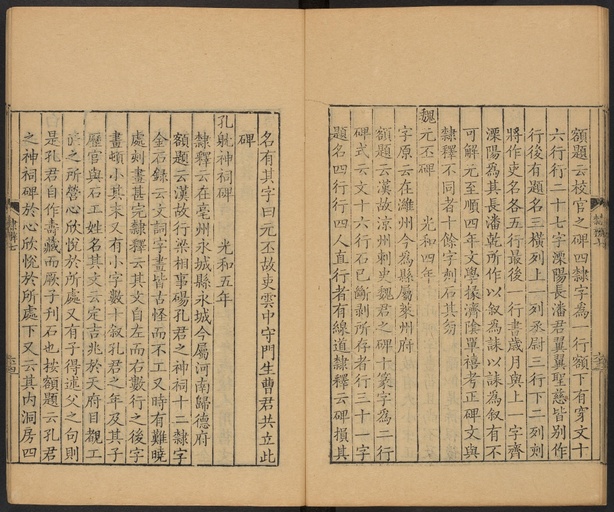 額題云校官之碑四隸字為一行額下有穿文十
六行行二十七字溧陽長潘君翼翼聖慈皆別作
行後有題名三橫列上一列丞尉三行下二列剡
將作吏名各五行最後一行書歲月與上一字齊
溧陽為其長潘乾所作以叙為誄以誄為叙有不
可解元至順四年文學掾濟陰單禧考正碑文與
隸釋不同者十餘字刻石其旁
魏元丕碑　光和四年
字原云在濰州今為縣屬萊州府
額題云漢故涼州刺史魏君之碑十篆字為二行
碑式云文十六行石已斷剥所存者行三十一字
題名四行行四人直行者有線道隸釋云碑損其
名有其字曰元丕故吏雲中守門生曹君共立此
碑
孔耽神祠碑　光和五年
隸釋云在亳州永城縣永城今屬河南歸德府
額題云漢故行梁相事碭孔君之神祠十二隸字
金石錄云文詞字畫皆古怪而不工又時有難曉
處刻畫甚完隸釋云其文自左而右數行之後字
畫頓小其末又有小字數十叙孔君之年及其子
歷官與石工姓名其文云定吉兆於天府目覩工
匠之所營心欣悅於所處又有子得述父之句則
是孔君自作壽藏而厥子刊石也按額題云孔君
之神祠碑於心欣悅於所處下又云其内洞房四